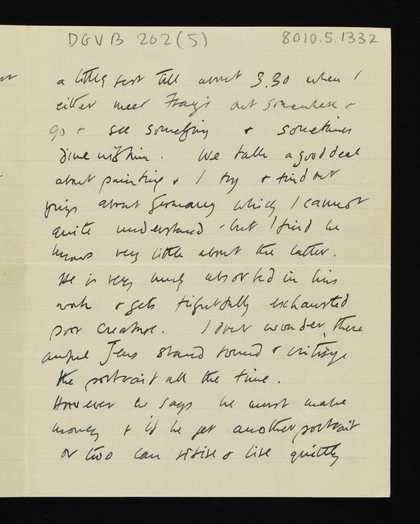 DGVB 202(5) 8010.5.1332
a little rest till about 3.30 when I
either meet out somewhere &
go & see something & sometimes
dine with him. We talk a good deal
about painting & I try & find out
things about Germany which I cannot
quite understand - but I find he
knows very little about the latter.
He is very much absorbed in his
work & gets frightfully exhausted
poor creature. I don't wonder, these
awful Jews stand round & criticize
the portrait all the time.
However he says he must make
money & if he get another portrait
or two can retire & live quietly